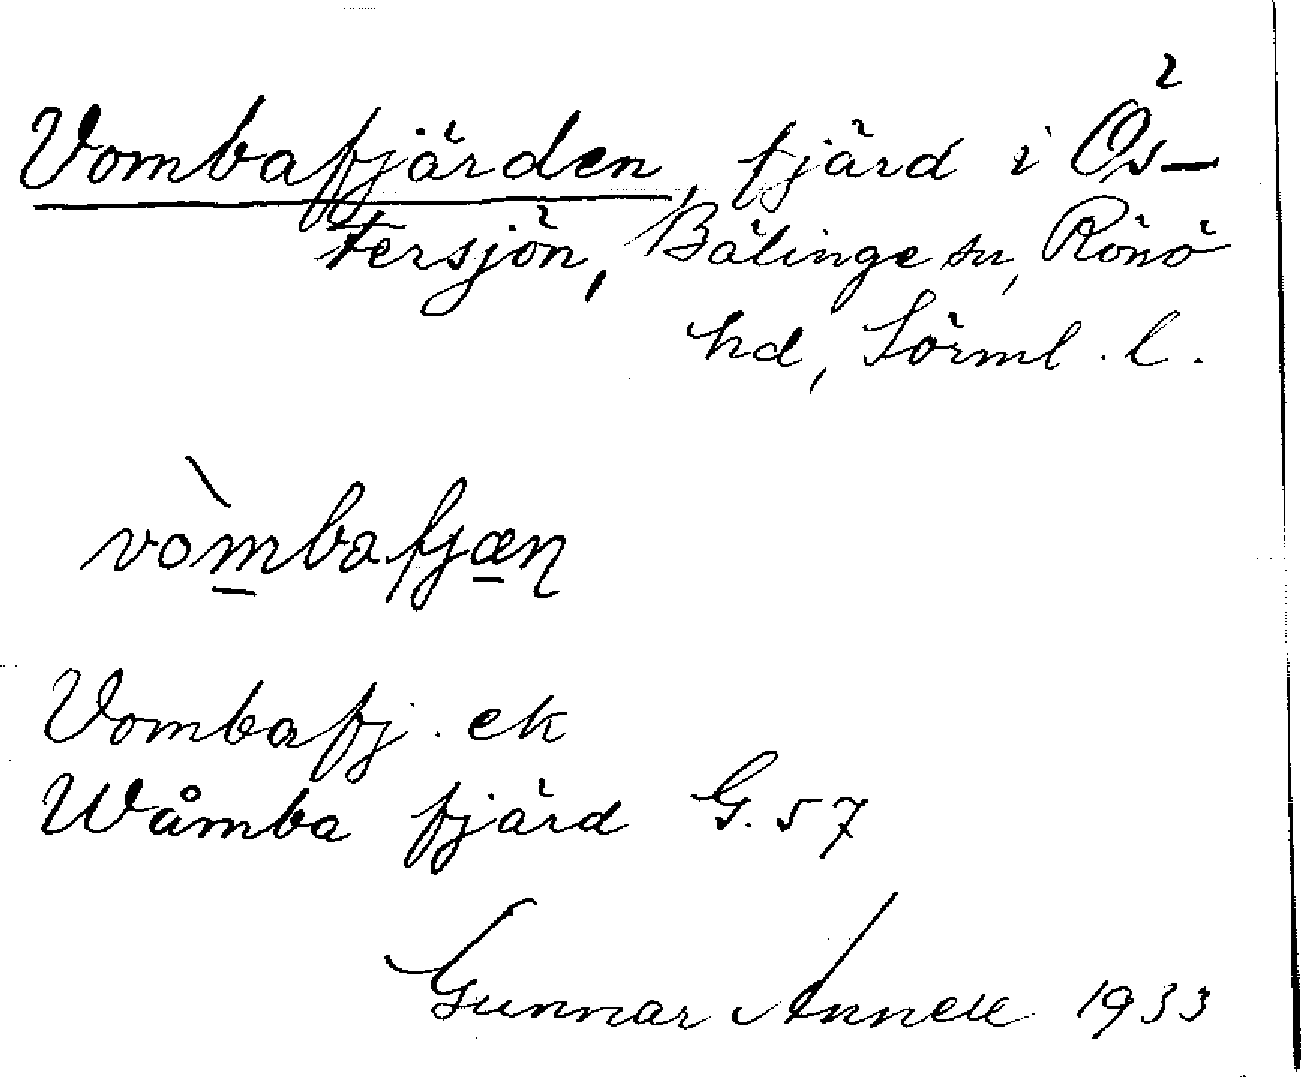 Vombafjärden, fjärd i Ös-
tersjön, Bälinge sn, Rönö
hd, Sörml. l.
vòmbafjæɳ
Vombafj. ek
Wåmba fjärd G. 57
Gunnar Annell 1933